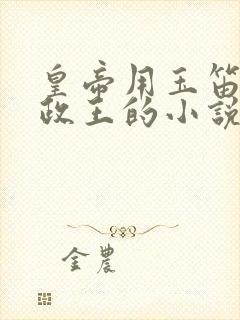 皇帝用玉笛
政王的小說
金農